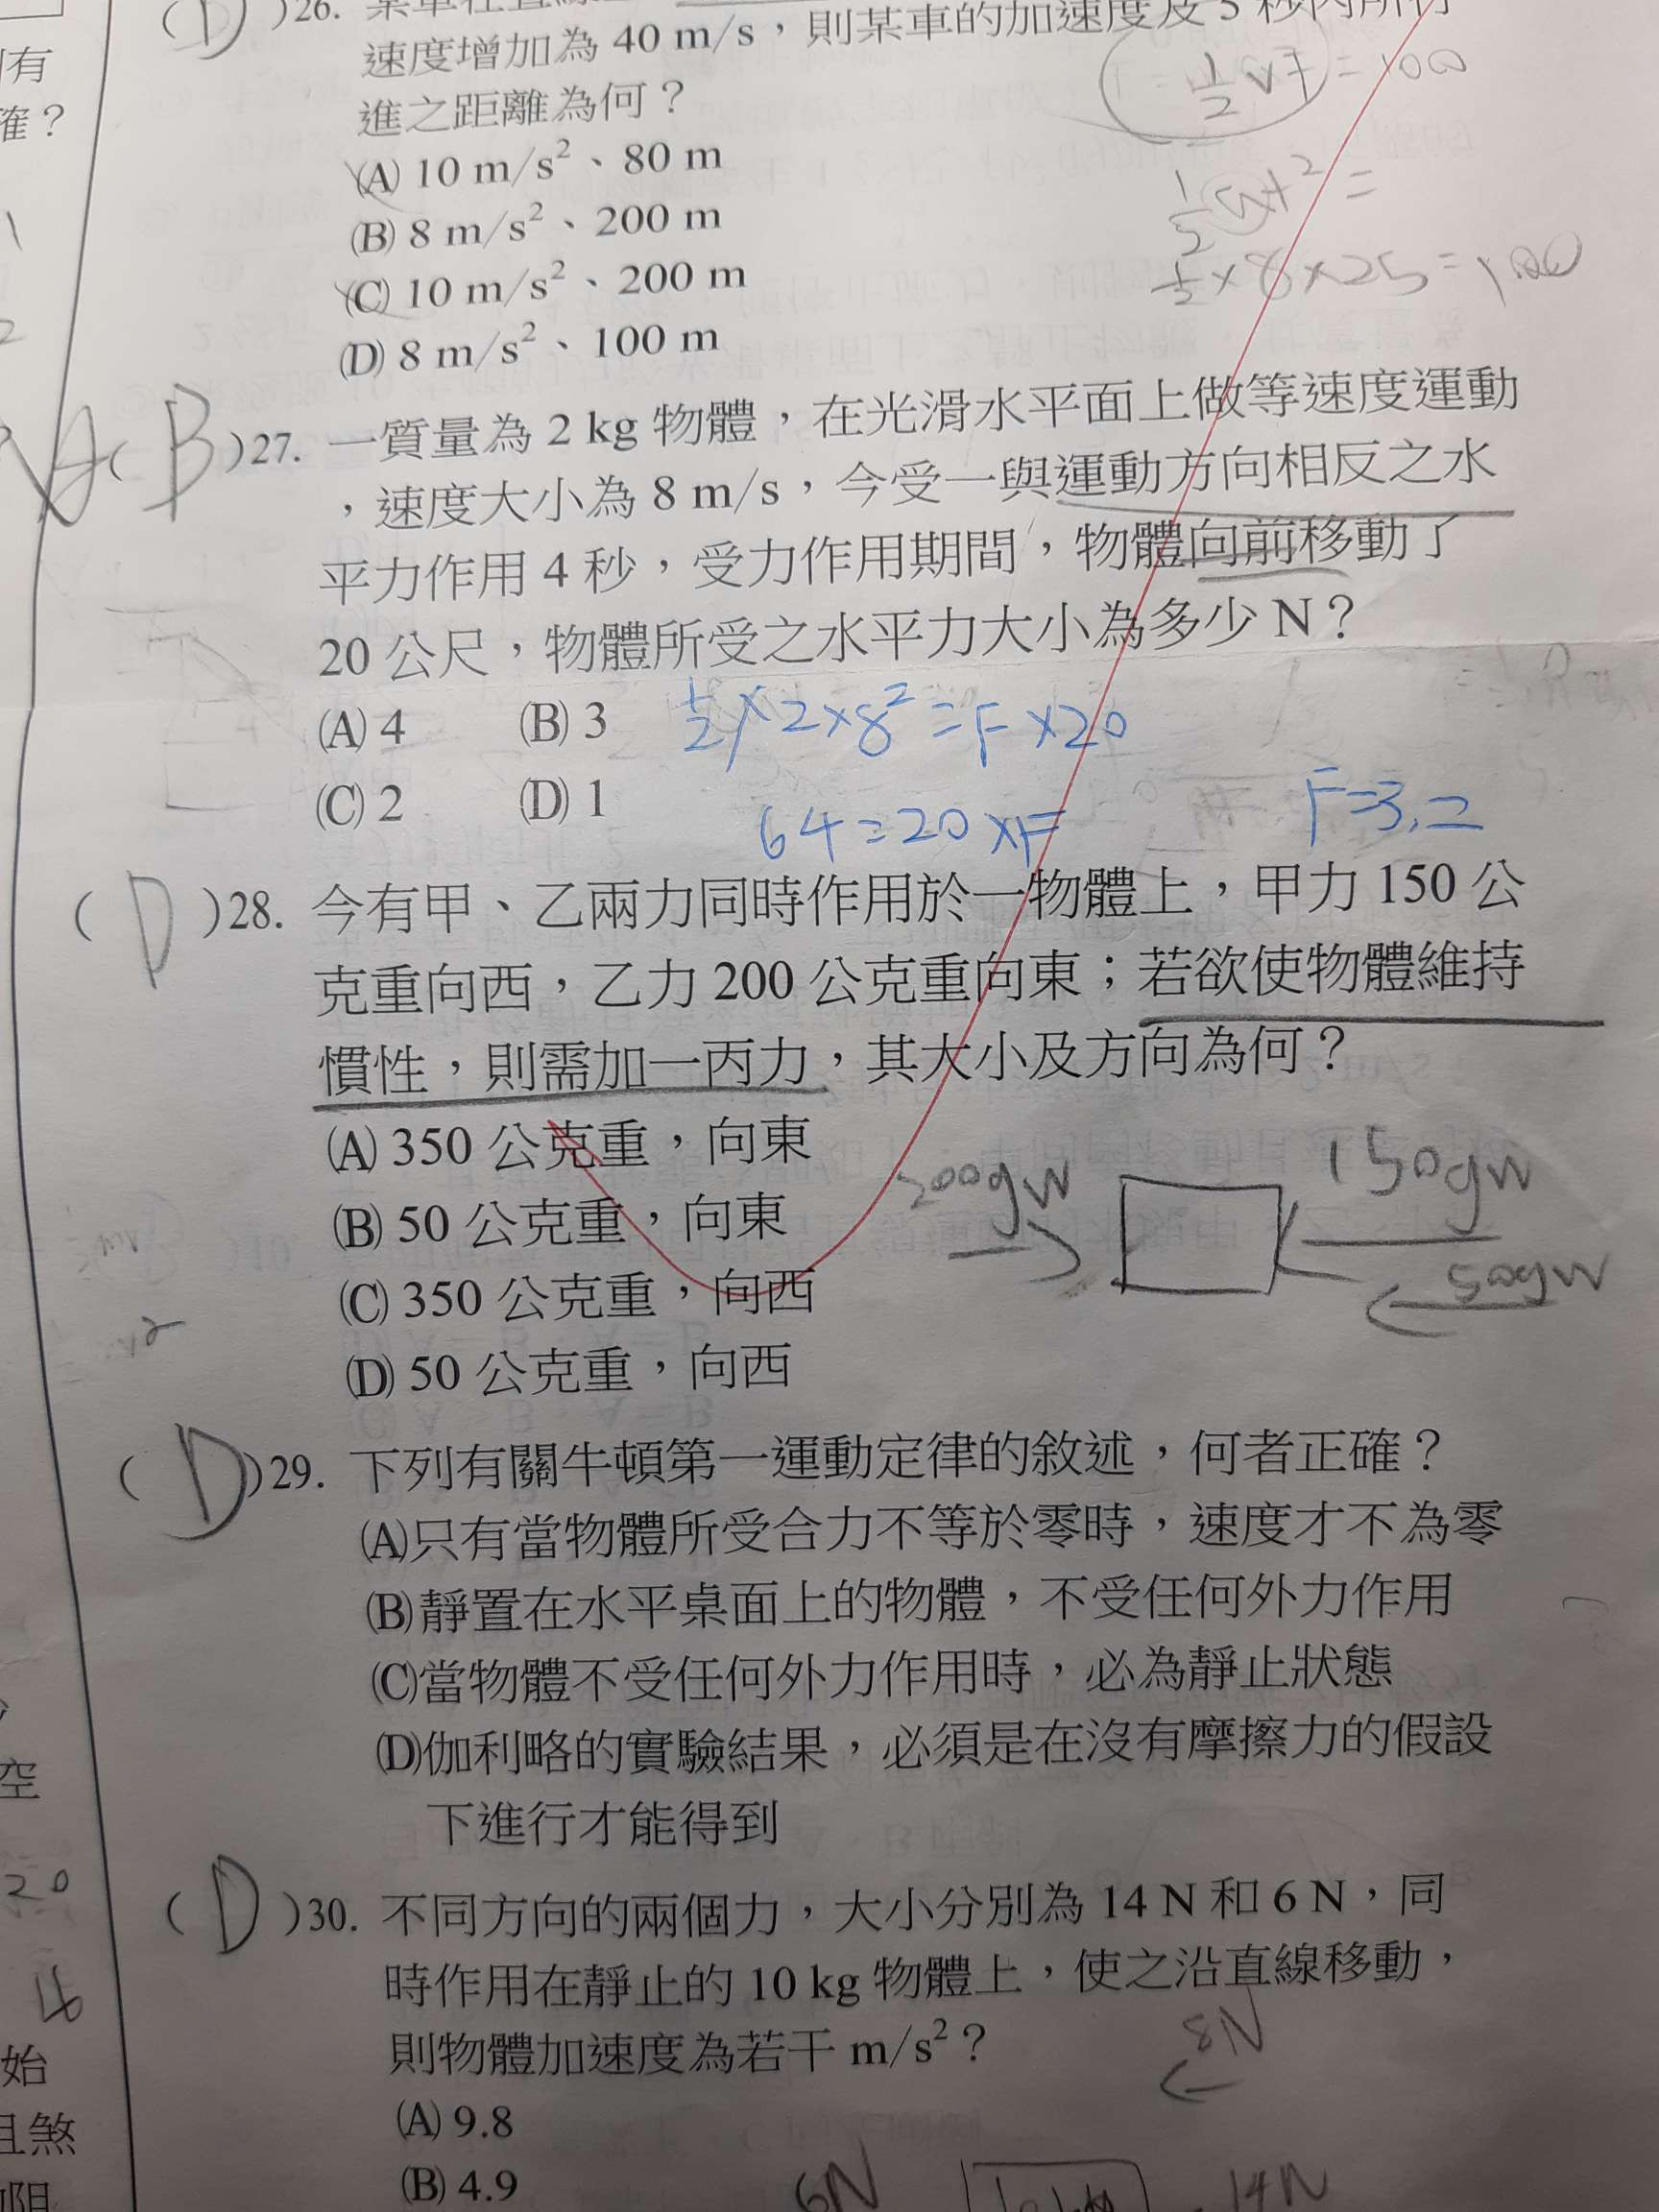 有
確？
(D)26.
速度增加為 40 m/s，則某車的加速度及 5 秒內所行
進之距離為何？
(A) 10 m/s²、80 m
(B) 8 m/s²、200 m
(C) 10 m/s²、200 m
(D) 8 m/s²、100 m
½vt = 100
½at² =
½×8×25=100
A(B)27. 一質量為 2 kg 物體，在光滑水平面上做等速度運動
，速度大小為 8 m/s，今受一與運動方向相反之水
平力作用 4 秒，受力作用期間，物體向前移動了
20 公尺，物體所受之水平力大小為多少 N？
(A) 4 (B) 3
(C) 2 (D) 1
½×2×8²=F×20
64=20×F F=3.2
(D)28. 今有甲、乙兩力同時作用於一物體上，甲力 150 公
克重向西，乙力 200 公克重向東；若欲使物體維持
慣性，則需加一丙力，其大小及方向為何？
(A) 350 公克重，向東
(B) 50 公克重，向東
(C) 350 公克重，向西
(D) 50 公克重，向西
200gw 150gw
50gw
(D)29. 下列有關牛頓第一運動定律的敘述，何者正確？
(A)只有當物體所受合力不等於零時，速度才不為零
(B)靜置在水平桌面上的物體，不受任何外力作用
(C)當物體不受任何外力作用時，必為靜止狀態
(D)伽利略的實驗結果，必須是在沒有摩擦力的假設
下進行才能得到
(D)30. 不同方向的兩個力，大小分別為 14 N 和 6 N，同
時作用在靜止的 10 kg 物體上，使之沿直線移動，
則物體加速度為若干 m/s²？
(A) 9.8
(B) 4.9
8N
6N 14N
空
20
始
且煞